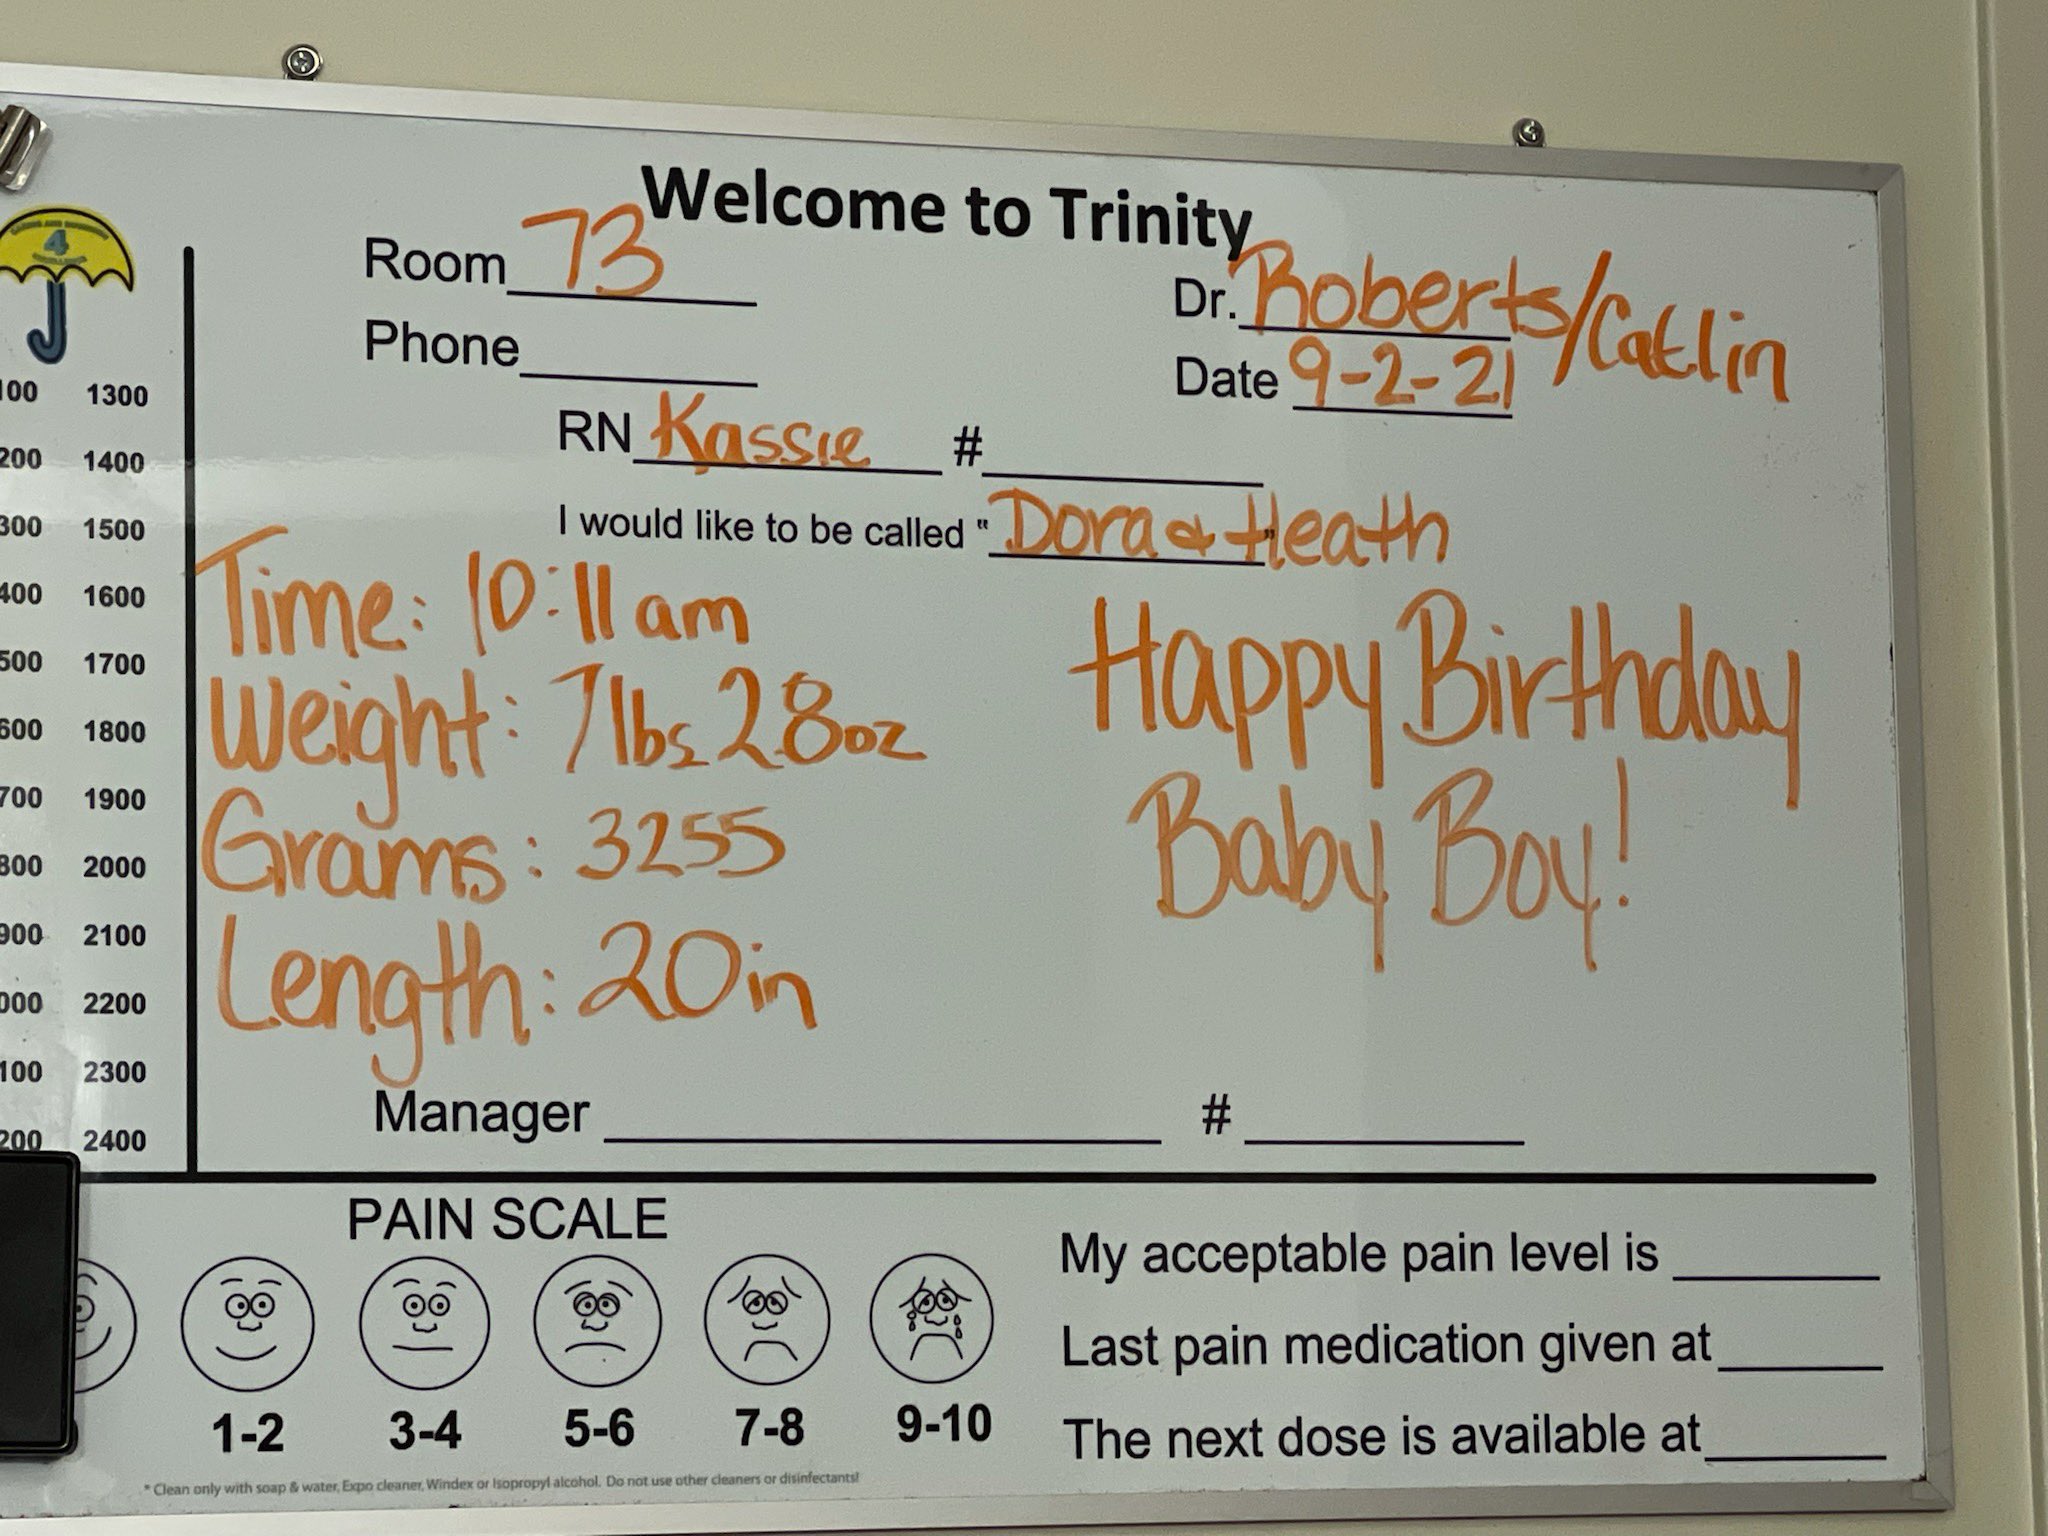 Welcome to Trinity
Room 73
Dr. Roberts/Catlin
Phone
Date 9-2-21
RN Kassie #
I would like to be called "Dora & Heath"
Time: 10:11 am
Weight: 7lbs 2.8oz
Grams: 3255
Length: 20in
Happy Birthday
Baby Boy!
Manager #
4
100 1300
200 1400
300 1500
400 1600
500 1700
600 1800
700 1900
800 2000
900 2100
000 2200
100 2300
200 2400
PAIN SCALE
1-2 3-4 5-6 7-8 9-10
My acceptable pain level is
Last pain medication given at
The next dose is available at
* Clean only with soap & water, Expo cleaner, Windex or Isopropyl alcohol. Do not use other cleaners or disinfectants!